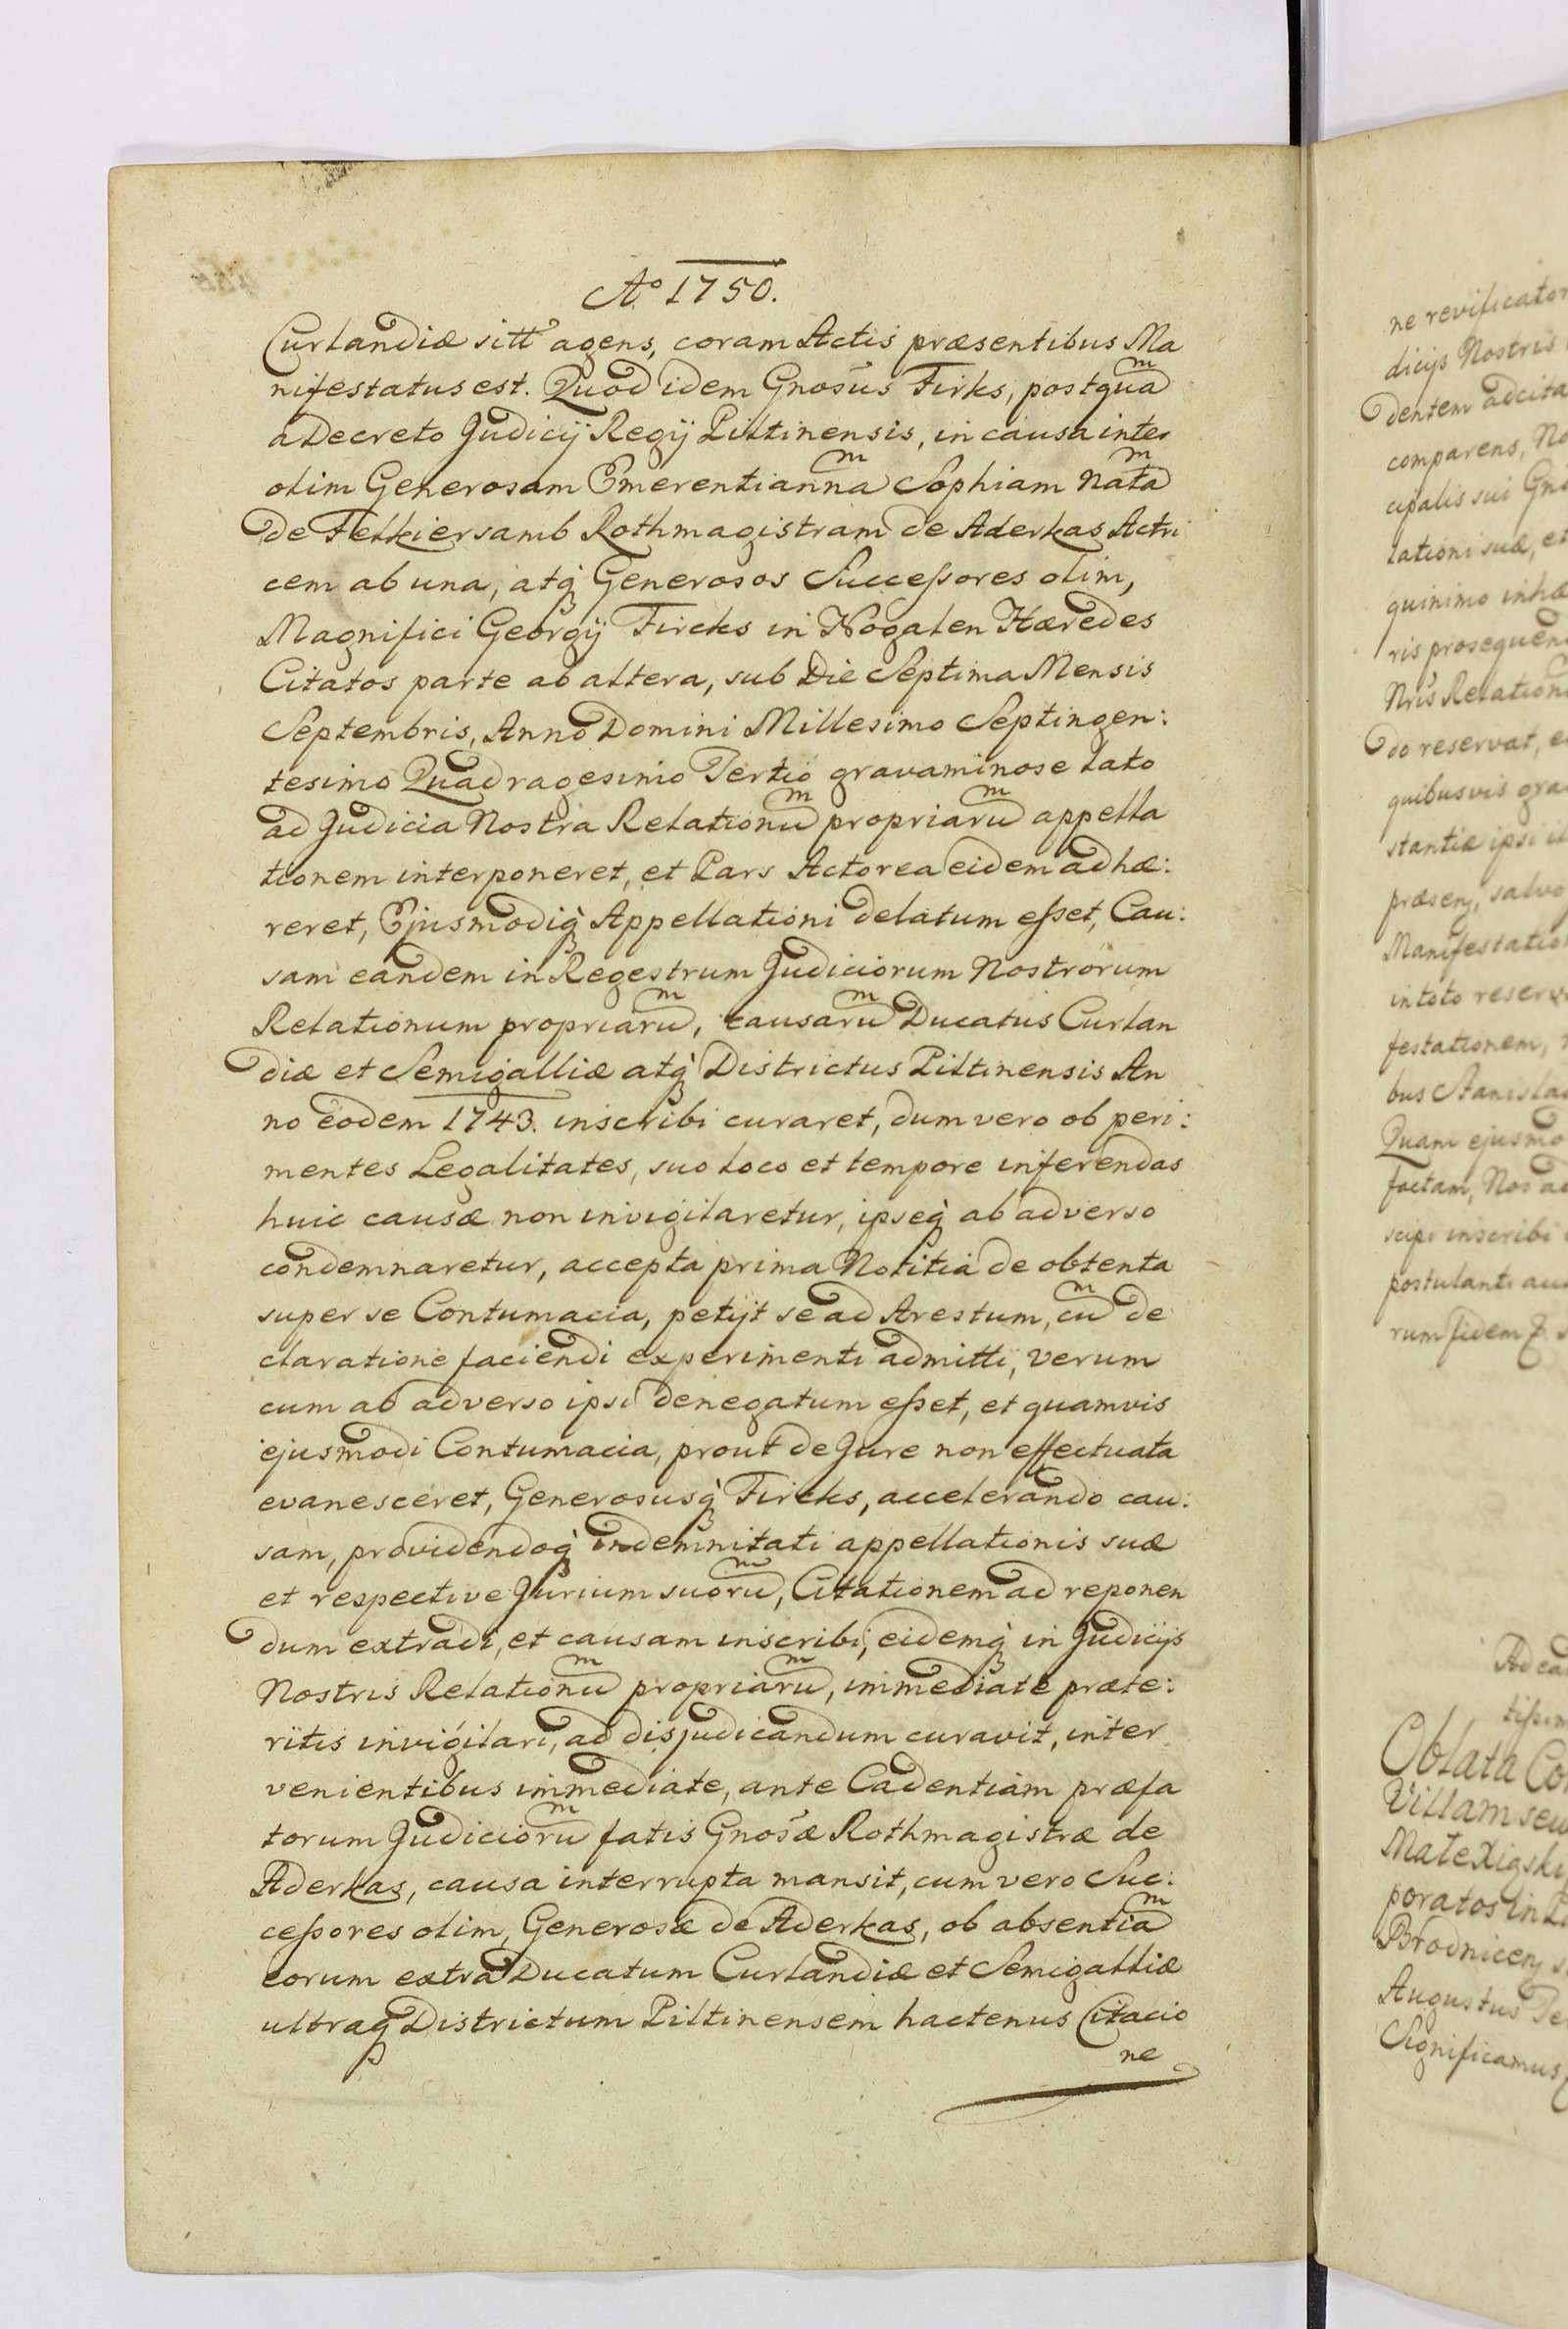 Aº 1750.
Curlandiæ sitt agens, coram Actis præsentibus Ma
nifestatus est. Quod idem Gnosus Firks, postquam
a Decreto Judicij Regij Piltinensis, in causa inter
olim Generosam Emerentiannam Sophiam natam
de Felkiersamb Rothmagistram de Aderkas Actri
cem ab una, atq̀ Generosos Successores olim,
Magnifici Georgij Fircks in Nogalen Hæredes
Citatos parte ab altera, sub Die Septima Mensis
Septembris, Anno Domini Millesimo Septingen:
tesimo Quadragesimo Tertio gravaminose lato
ad Judicia Nostra Relationum propriarum appella
tionem interponeret, et Pars Actorea eidem adhæ:
reret, Ejusmodiq̀ Appellationi delatum esset, Cau:
sam eandem in Regestrum Judiciorum Nostrorum
Relationum propriarum, causarum Ducatus Curlan
diæ et Semigalliæ atq̀ Districtus Piltinensis An
no eodem 1743. inscribi curaret, dum vero ob peri:
mentes Legalitates, suo loco et tempore inferendas
huic causæ non invigilaretur, ipseq̀ ab adverso
condemnaretur, accepta prima Notitia de obtenta
super se Contumacia, petijt se ad Arestum, cum de
claratione faciendi experimenti admitti, verum
cum ab adverso ipsi denegatum esset, et quamvis
ejusmodi Contumacia, prout de Jure non effectuata
evanesceret, Generosusq̀ Fircks, accelerando cau:
sam, providendoq̀ indemnitati appellationis suæ
et respective Jurium suorum, Citationem ad reponen
dum extradi, et causam inscribi, eidemq̀ in Judicijs
Nostris Relationum propriarum, immediate præte:
ritis invigilari, ad disjudicandum curavit, inter
venientibus immediate, ante Cadentiam præfa
torum Judiciorum fatis Gnosæ Rothmagistræ de
Aderkas, causa interrupta mansit, cum vero Suc:
cessores olim, Generosæ de Aderkas, ob absentiam
eorum extra Ducatum Curlandiæ et Semigalliæ
ultraq̀ Districtum Piltinensem hactenus Citacio
ne
ne revificator
dicijs Nostris
dentem adcita
comparens, No
cipalis sui Gno
lationi suæ, et
quinimo inhæ
ris prosequen
Nris Relation
do reservat, e
quibusvis gra
stantiæ ipsi
præsens, salvo
Manifestatio
in toto reserv
festationem,
bus Stanisla
Quam ejusmo
factam, Nos ad
scipi inscribi
postulanti au
rum fidem
Ad ca
tissim
Oblata Co
Villam seu
Matexigsky
poratos in
Brodnicen
Augustus Te
Significamus